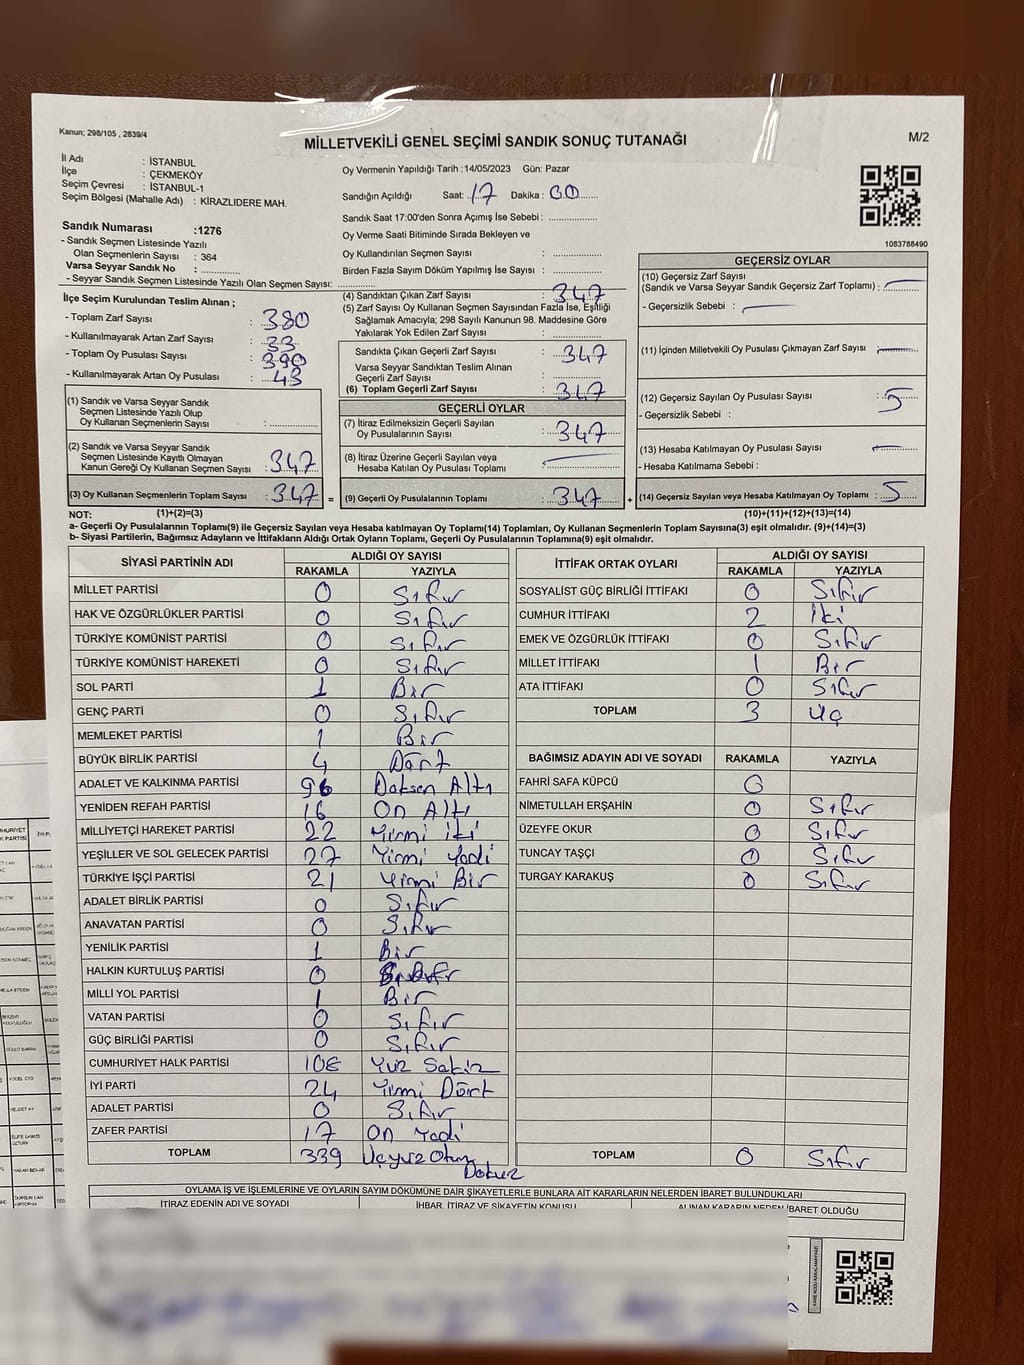 Kanun; 298/105 , 2839/4
MİLLETVEKİLİ GENEL SEÇİMİ SANDIK SONUÇ TUTANAĞI
M/2
İl Adı : İSTANBUL
İlçe : ÇEKMEKÖY
Seçim Çevresi : İSTANBUL-1
Seçim Bölgesi (Mahalle Adı) : KİRAZLIDERE MAH.
Sandık Numarası :1276
- Sandık Seçmen Listesinde Yazılı
Olan Seçmenlerin Sayısı : 364
Varsa Seyyar Sandık No : ..............
- Seyyar Sandık Seçmen Listesinde Yazılı Olan Seçmen Sayısı: ..............
Oy Vermenin Yapıldığı Tarih :14/05/2023 Gün: Pazar
Sandığın Açıldığı Saat: 17 Dakika : 00
Sandık Saat 17:00'den Sonra Açımış İse Sebebi : ..............
Oy Verme Saati Bitiminde Sırada Bekleyen ve
Oy Kullandırılan Seçmen Sayısı : ..............
Birden Fazla Sayım Döküm Yapılmış İse Sayısı : ..............
1083768490
İlçe Seçim Kurulundan Teslim Alınan ;
- Toplam Zarf Sayısı : 380
- Kullanılmayarak Artan Zarf Sayısı : 33
- Toplam Oy Pusulası Sayısı : 390
- Kullanılmayarak Artan Oy Pusulası : 43
(1) Sandık ve Varsa Seyyar Sandık
Seçmen Listesinde Yazılı Olup
Oy Kullanan Seçmenlerin Sayısı : ..............
(2) Sandık ve Varsa Seyyar Sandık
Seçmen Listesinde Kayıtlı Olmayan
Kanun Gereği Oy Kullanan Seçmen Sayısı : 347
(3) Oy Kullanan Seçmenlerin Toplam Sayısı : 347 =
(4) Sandıktan Çıkan Zarf Sayısı : 347
(5) Zarf Sayısı Oy Kullanan Seçmen Sayısından Fazla İse, Eşitliği
Sağlamak Amacıyla; 298 Sayılı Kanunun 98. Maddesine Göre
Yakılarak Yok Edilen Zarf Sayısı : ..............
Sandıkta Çıkan Geçerli Zarf Sayısı : 347
Varsa Seyyar Sandıktan Teslim Alınan
Geçerli Zarf Sayısı : ..............
(6) Toplam Geçerli Zarf Sayısı : 347
GEÇERLİ OYLAR
(7) İtiraz Edilmeksizin Geçerli Sayılan
Oy Pusulalarının Sayısı : 347
(8) İtiraz Üzerine Geçerli Sayılan veya
Hesaba Katılan Oy Pusulası Toplamı
(9) Geçerli Oy Pusulalarının Toplamı : 347 +
GEÇERSİZ OYLAR
(10) Geçersiz Zarf Sayısı
(Sandık ve Varsa Seyyar Sandık Geçersiz Zarf Toplamı) :
- Geçersizlik Sebebi :
(11) İçinden Milletvekili Oy Pusulası Çıkmayan Zarf Sayısı
(12) Geçersiz Sayılan Oy Pusulası Sayısı : 5
- Geçersizlik Sebebi :
(13) Hesaba Katılmayan Oy Pusulası Sayısı :
- Hesaba Katılmama Sebebi :
(14) Geçersiz Sayılan veya Hesaba Katılmayan Oy Toplamı : 5
NOT: (1)+(2)=(3) (10)+(11)+(12)+(13)=(14)
a- Geçerli Oy Pusulalarının Toplamı(9) ile Geçersiz Sayılan veya Hesaba katılmayan Oy Toplamı(14) Toplamları, Oy Kullanan Seçmenlerin Toplam Sayısına(3) eşit olmalıdır. (9)+(14)=(3)
b- Siyasi Partilerin, Bağımsız Adayların ve İttifakların Aldığı Ortak Oyların Toplamı, Geçerli Oy Pusulalarının Toplamına(9) eşit olmalıdır.
SİYASİ PARTİNİN ADI ALDIĞI OY SAYISI
RAKAMLA YAZIYLA
MİLLET PARTİSİ 0 Sıfır
HAK VE ÖZGÜRLÜKLER PARTİSİ 0 Sıfır
TÜRKİYE KOMÜNİST PARTİSİ 0 Sıfır
TÜRKİYE KOMÜNİST HAREKETİ 0 Sıfır
SOL PARTİ 1 Bir
GENÇ PARTİ 0 Sıfır
MEMLEKET PARTİSİ 1 Bir
BÜYÜK BİRLİK PARTİSİ 4 Dört
ADALET VE KALKINMA PARTİSİ 96 Doksan Altı
YENİDEN REFAH PARTİSİ 16 On Altı
MİLLİYETÇİ HAREKET PARTİSİ 22 Yirmi İki
YEŞİLLER VE SOL GELECEK PARTİSİ 27 Yirmi Yedi
TÜRKİYE İŞÇİ PARTİSİ 21 Yirmi Bir
ADALET BİRLİK PARTİSİ 0 Sıfır
ANAVATAN PARTİSİ 0 Sıfır
YENİLİK PARTİSİ 1 Bir
HALKIN KURTULUŞ PARTİSİ 0 Sıfır
MİLLİ YOL PARTİSİ 1 Bir
VATAN PARTİSİ 0 Sıfır
GÜÇ BİRLİĞİ PARTİSİ 0 Sıfır
CUMHURİYET HALK PARTİSİ 108 Yüz Sekiz
İYİ PARTİ 24 Yirmi Dört
ADALET PARTİSİ 0 Sıfır
ZAFER PARTİSİ 17 On Yedi
TOPLAM 339 Üçyüz Otuz Dokuz
İTTİFAK ORTAK OYLARI ALDIĞI OY SAYISI
RAKAMLA YAZIYLA
SOSYALİST GÜÇ BİRLİĞİ İTTİFAKI 0 Sıfır
CUMHUR İTTİFAKI 2 İki
EMEK VE ÖZGÜRLÜK İTTİFAKI 0 Sıfır
MİLLET İTTİFAKI 1 Bir
ATA İTTİFAKI 0 Sıfır
TOPLAM 3 Üç
BAĞIMSIZ ADAYIN ADI VE SOYADI RAKAMLA YAZIYLA
FAHRİ SAFA KÜPCÜ 0
NİMETULLAH ERŞAHİN 0 Sıfır
ÜZEYFE OKUR 0 Sıfır
TUNCAY TAŞÇI 0 Sıfır
TURGAY KARAKUŞ 0 Sıfır
TOPLAM 0 Sıfır
OYLAMA İŞ VE İŞLEMLERİNE VE OYLARIN SAYIM DÖKÜMÜNE DAİR ŞİKAYETLERLE BUNLARA AİT KARARLARIN NELERDEN İBARET BULUNDUKLARI
İTİRAZ EDENİN ADI VE SOYADI İHBAR, İTİRAZ VE ŞİKAYETİN KONUSU ALINAN KARARIN NEDEN İBARET OLDUĞU